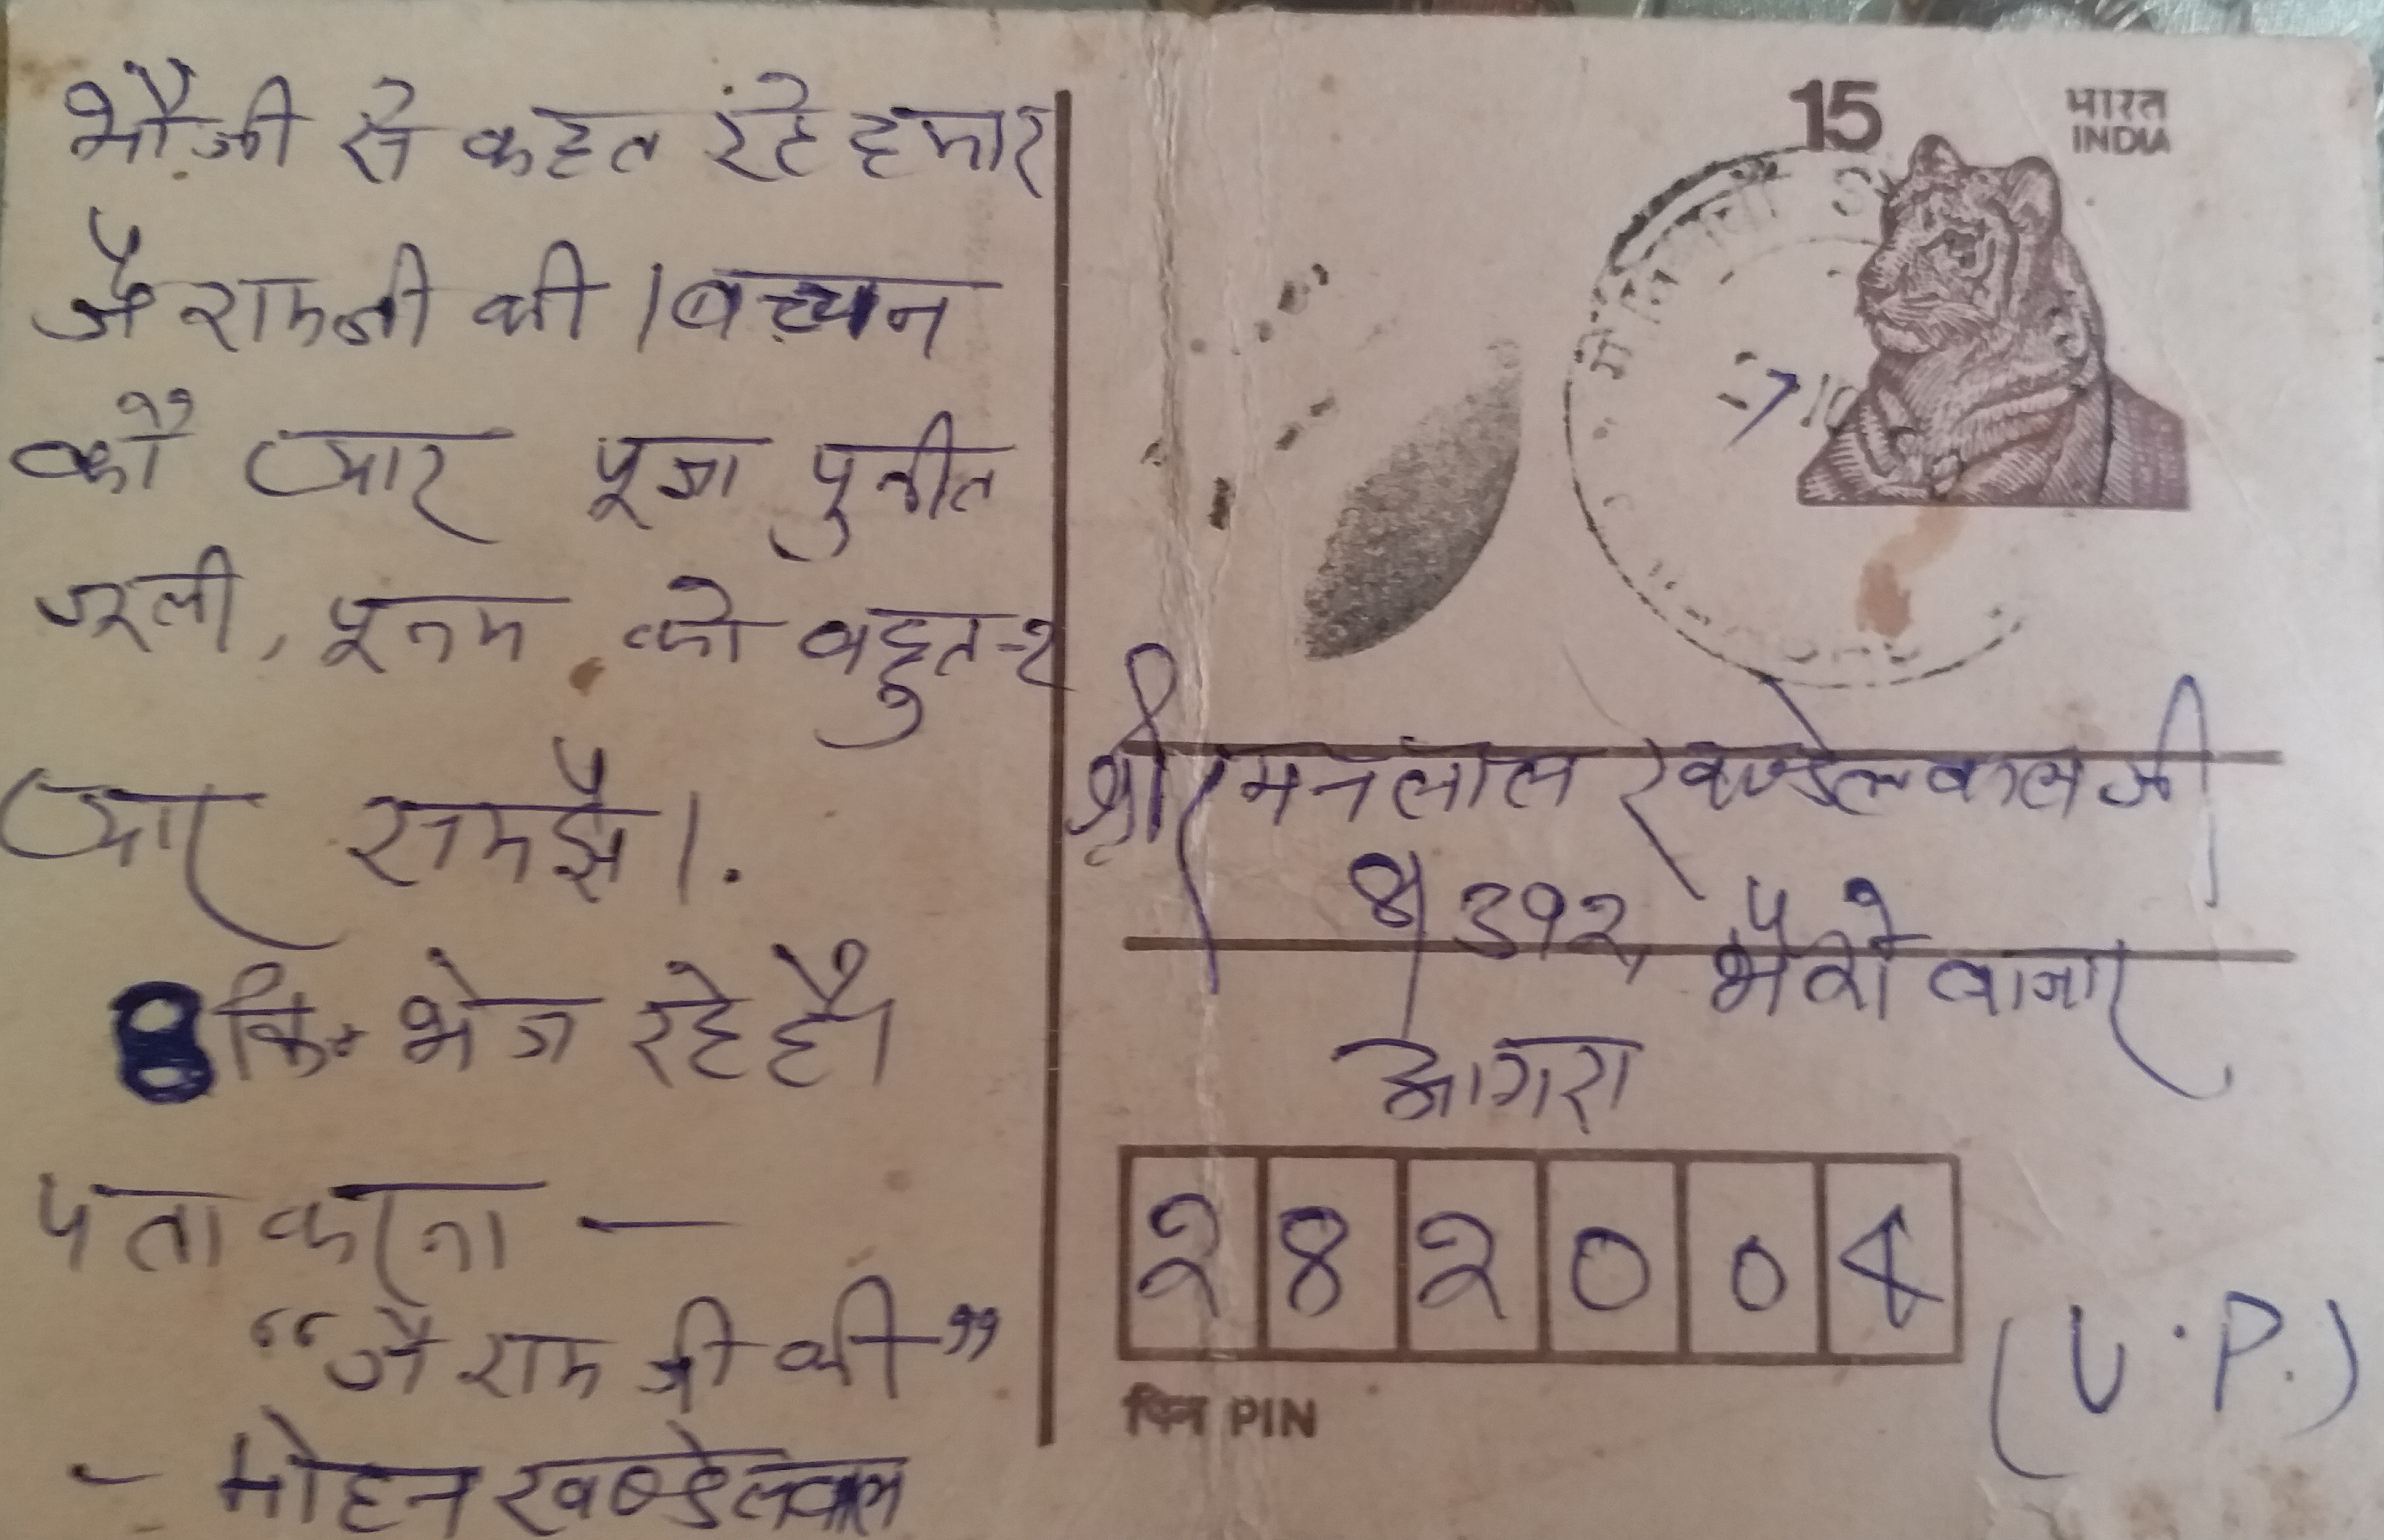 भौजी से कहत रहे हमार
जै रामजी की । बच्चन
कौ प्यार पूजा पुनीत
पूनम को बहुत-२
प्यार समझै।
8 कि॰ भेज रहे है।
पता करना —
“जै राम जी की”
- मोहन खण्डेलवाल
15
भारत
INDIA
श्री रमनलाल खण्डेलवाल जी
४/३१२, भैरो बाजार
आगरा
२८२००४
(U.P.)
पिन PIN